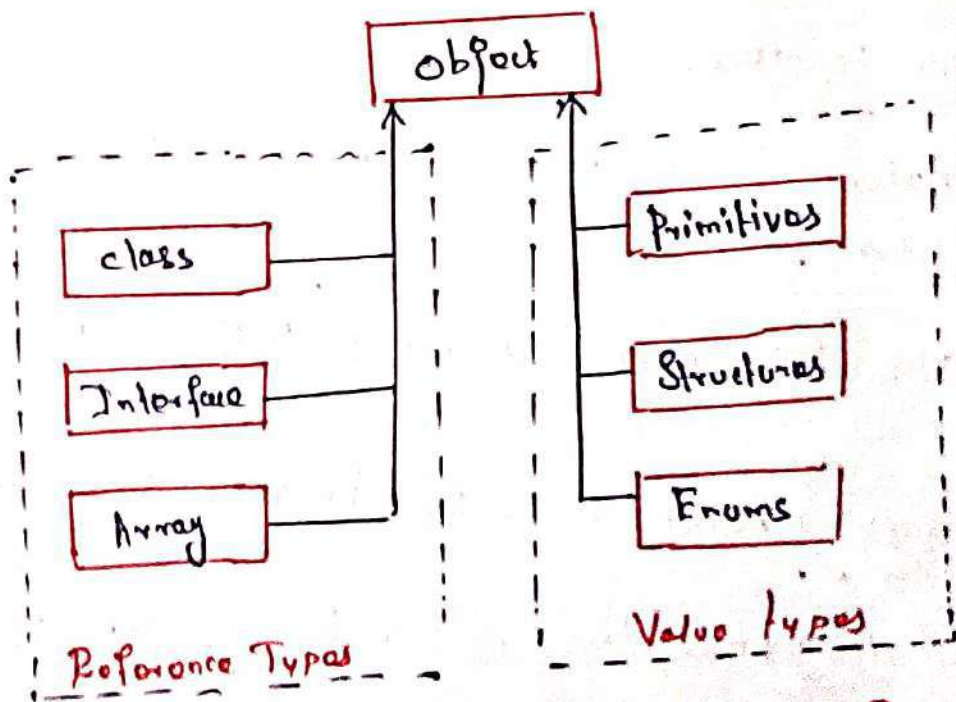 Object
class
Interface
Array
Reference Types
Primitives
Structures
Enums
Value types